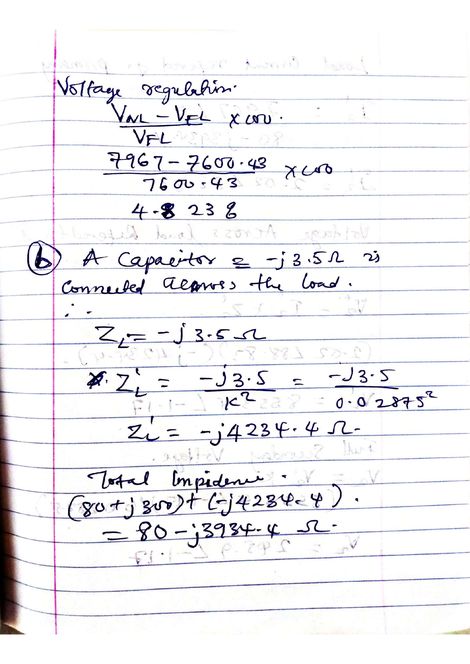 Voltage regulation.
V_NL – V_FL / V_FL × 100.
7967 – 7600.43 / 7600.43 × 100
4.8238
(b) A Capacitor = -j3.5Ω is
connected across the load.
∴
Z_L = -j3.5Ω
Z'_L = -j3.5 / K² = -j3.5 / 0.02875²
Z'_L = -j4234.4 Ω.
Total Impidence.
(80+j300)+(-j4234.4).
= 80-j3934.4 Ω.